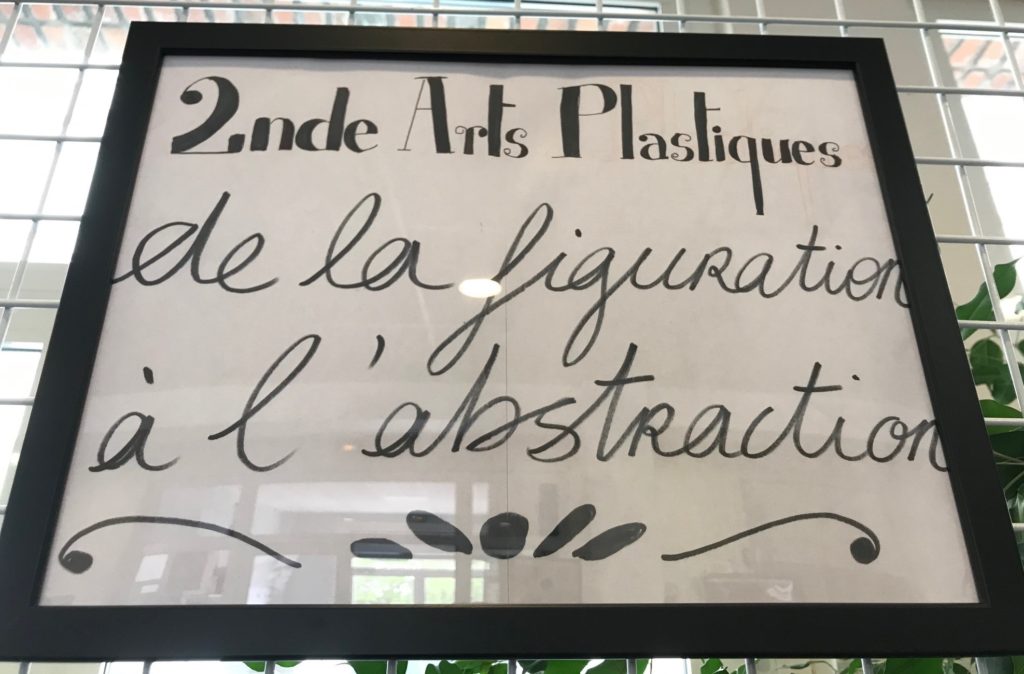 2nde Arts Plastiques
de la figuration
à l'abstraction